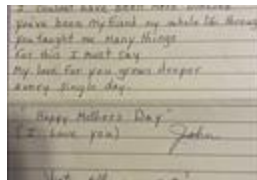 I couldn't have been more
you've been my friend my whole life through
you taught me many things
for this I must say
My love for you grows deeper
every single day.
"Happy Mothers Day"
(I love you) John